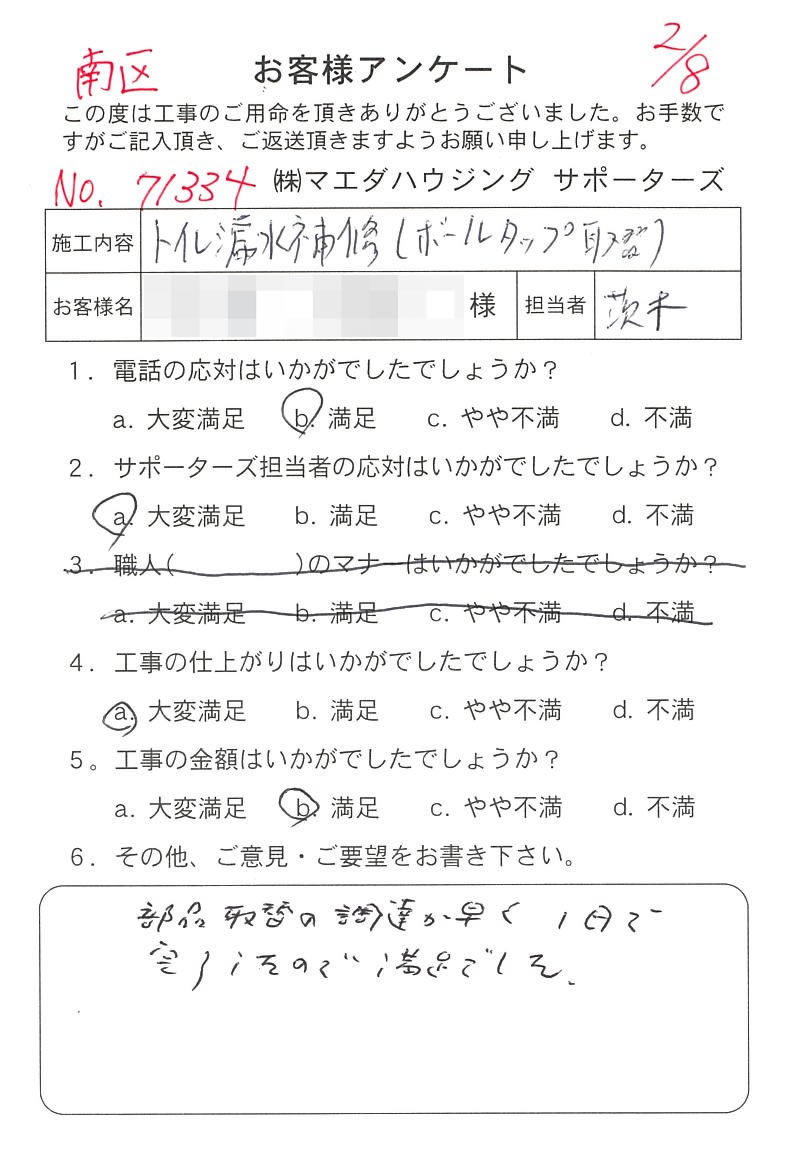 南区 お客様アンケート 2/8
この度は工事のご用命を頂きありがとうございました。お手数で
すがご記入頂き、ご返送頂きますようお願い申し上げます。
No. 71334 ㈱マエダハウジング サポーターズ
施工内容 トイレ漏水補修(ボールタップ取替)
お客様名 様 担当者 茨木
1. 電話の応対はいかがでしたでしょうか?
a. 大変満足 b. 満足 c. やや不満 d. 不満
2. サポーターズ担当者の応対はいかがでしたでしょうか?
a. 大変満足 b. 満足 c. やや不満 d. 不満
3. 職人( )のマナーはいかがでしたでしょうか?
a. 大変満足 b. 満足 c. やや不満 d. 不満
4. 工事の仕上がりはいかがでしたでしょうか?
a. 大変満足 b. 満足 c. やや不満 d. 不満
5。工事の金額はいかがでしたでしょうか?
a. 大変満足 b. 満足 c. やや不満 d. 不満
6. その他、ご意見・ご要望をお書き下さい。
部品取替の調達が早く 1日で
完了したので満足でした。